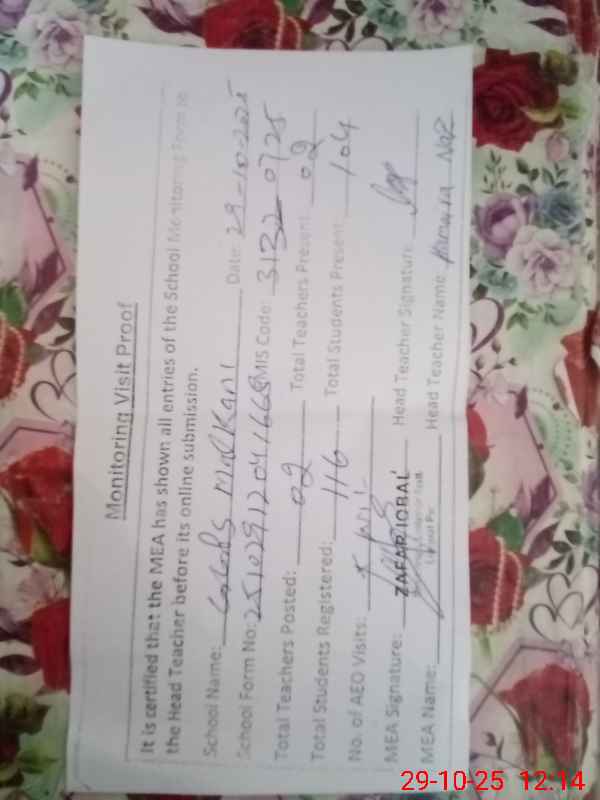 Monitoring Visit Proof
It is certified that the MEA has shown all entries of the School Monitoring Form to
the Head Teacher before its online submission.
School Name: MALKANI Date: 29-10-2025
School Form No: EMIS Code: 3132 0725
Total Teachers Posted: 02 Total Teachers Present: 02
Total Students Registered: 116 Total Students Present: 104
No. of AEO Visits:
MEA Signature: ZAFAR IQBAL Head Teacher Signature
MEA Name: Head Teacher Name
29-10-25 12:14